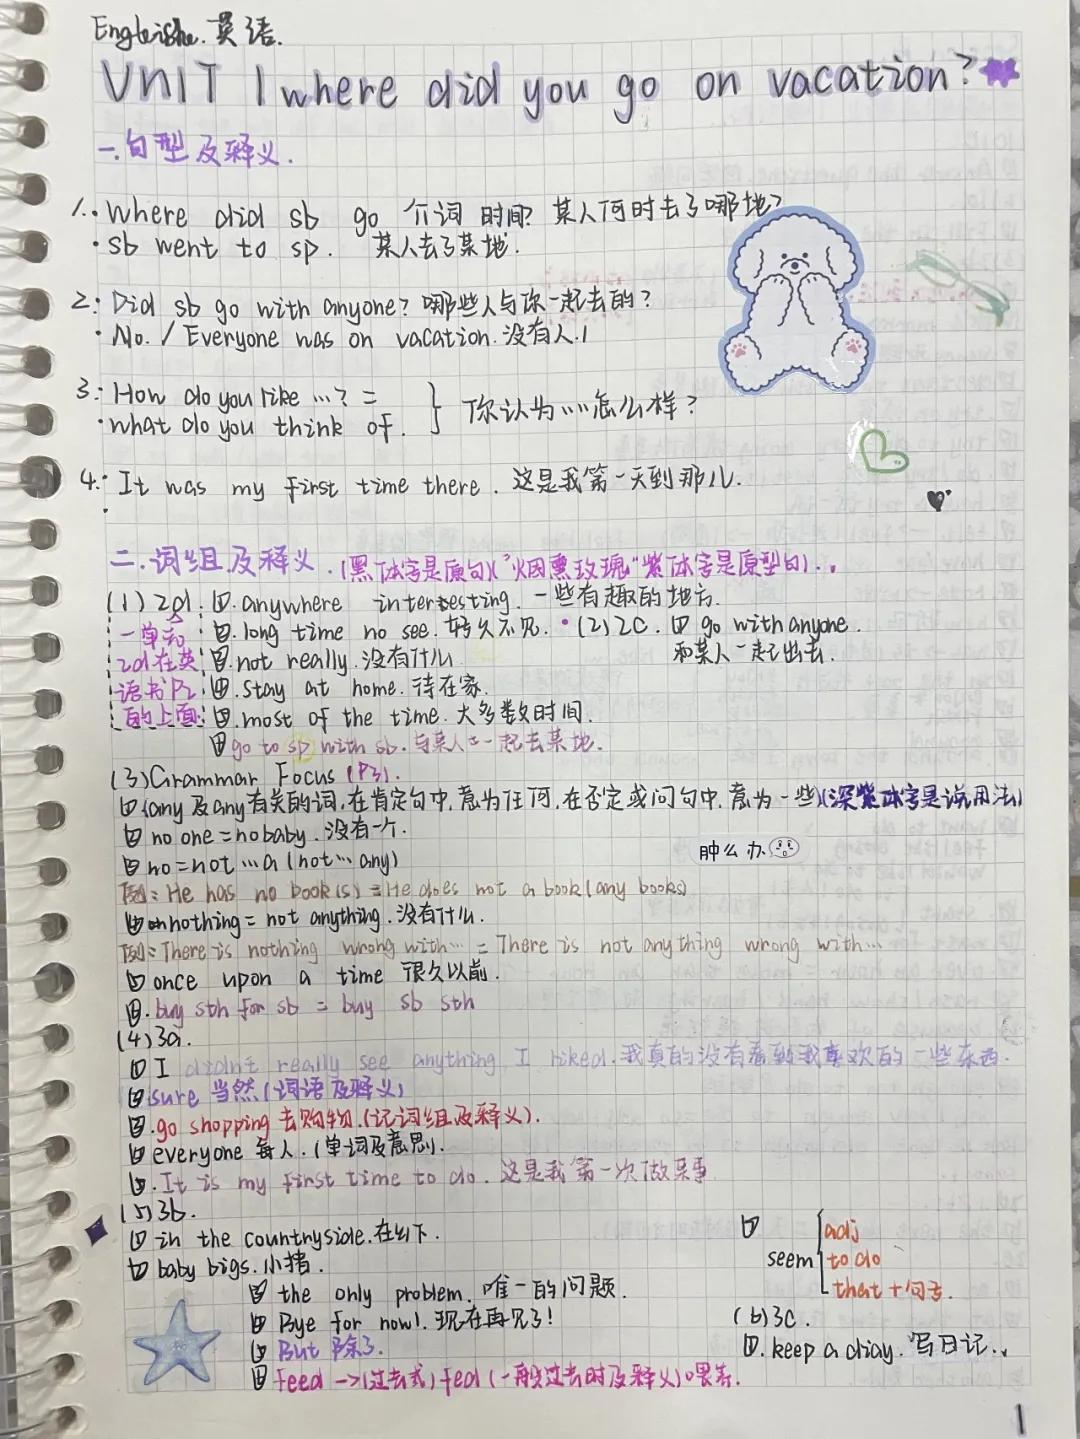 英语.
UNIT 1 where did you go on vacation?
一.句型及释义.
1.·Where did sb go 介词 时间? 某人何时去了哪地?
·sb went to sp. 某人去了某地.
2.·Did sb go with anyone? 哪些人与你一起去的?
·No. / Everyone was on vacation.没有人.1
3.·How do you like …? =
·what do you think of. } 你认为……怎么样?
4.·It was my first time there. 这是我第一天到那儿.
二.词组及释义.(黑体字是原句)("烟熏玫瑰"紫体字是原型句)..
(1)2d.①.anywhere intertesting. 一些有趣的地方.
一单元2d在英语书P2的上面
②.long time no see.好久不见.
③.not really.没有什么
④.stay at home.待在家.
⑤.most of the time.大多数时间.
⑥go to sp with sb.与某人一起去某地.
·(2)2C.①go with anyone.
和某人一起出去.
(3)Grammar Focus(P3).
①any及any有关的词,在肯定句中,意为任何,在否定或问句中,意为一些)(深紫体字是说用法)
②no one=nobaby.没有一个.
肿么办
③no=not…a(not…any)
例:He has no book(s)=He does not a book(any books)
④nothing= not anything.没有什么.
例:There is nothing wrong with…=There is not anything wrong with…
⑤once upon a time 很久以前.
⑥.buy sth for sb = buy sb sth
(4)3a.
①I didn't really see anything I liked.我真的没有看到我喜欢的一些东西.
②sure 当然(词语及释义)
③.go shopping 去购物.(记词组及释义).
④everyone 每人.(单词及意思).
⑤.It is my first time to do.这是我第一次做某事
(5)3b.
①in the countryside.在乡下.
②baby bigs.小猪.
③the only problem.唯一的问题.
④Bye for now!.现在再见了!
⑤But 除了.
⑥feed->(过去式)fed(一般过去时及释义)喂养.
⑦
seem {adj
to do
that+句子.
(6)3C.
①.keep a diay.写日记..
1